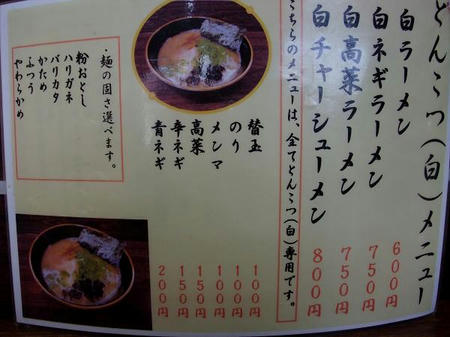 どんこつ(白)メニュー
白ラーメン 600円
白ネギラーメン 750円
白高菜ラーメン 750円
白チャーシューメン 800円
こちらのメニューは、全てどんこつ(白)専用です。
替玉 100円
のり 100円
メンマ 100円
高菜 150円
辛ネギ 150円
青ネギ 200円
・麺の固さ選べます。
粉おとし
ハリガネ
バリカタ
かため
ふつう
やわらかめ